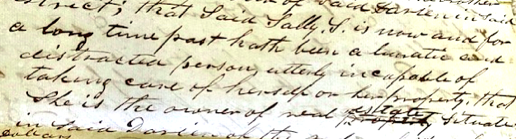 of said Darien in said
District; that Said Sally. S. is now and for
a long time past hath been a lunatic and
distracted person, utterly incapable of
taking care of herself or her property; that
She is the owner of real estate situate
in said Darien of the